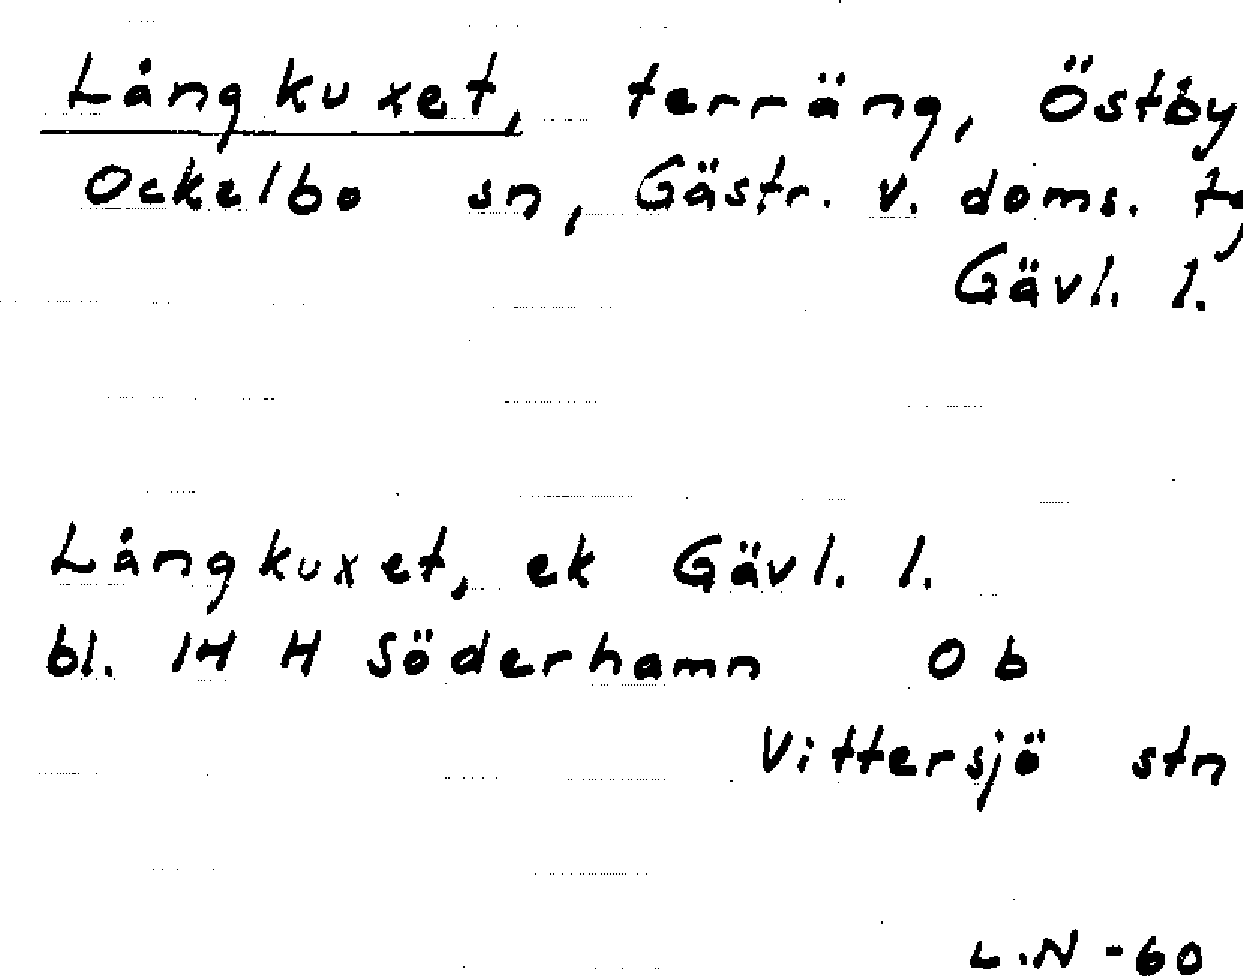 Långkuxet, terräng, Östby
Ockelbo sn, Gästr. v. doms.
Gävl. l.
Långkuxet, ek Gävl. l.
bl. 14 H Söderhamn 0 b
Vittersjö stn
L.N -60